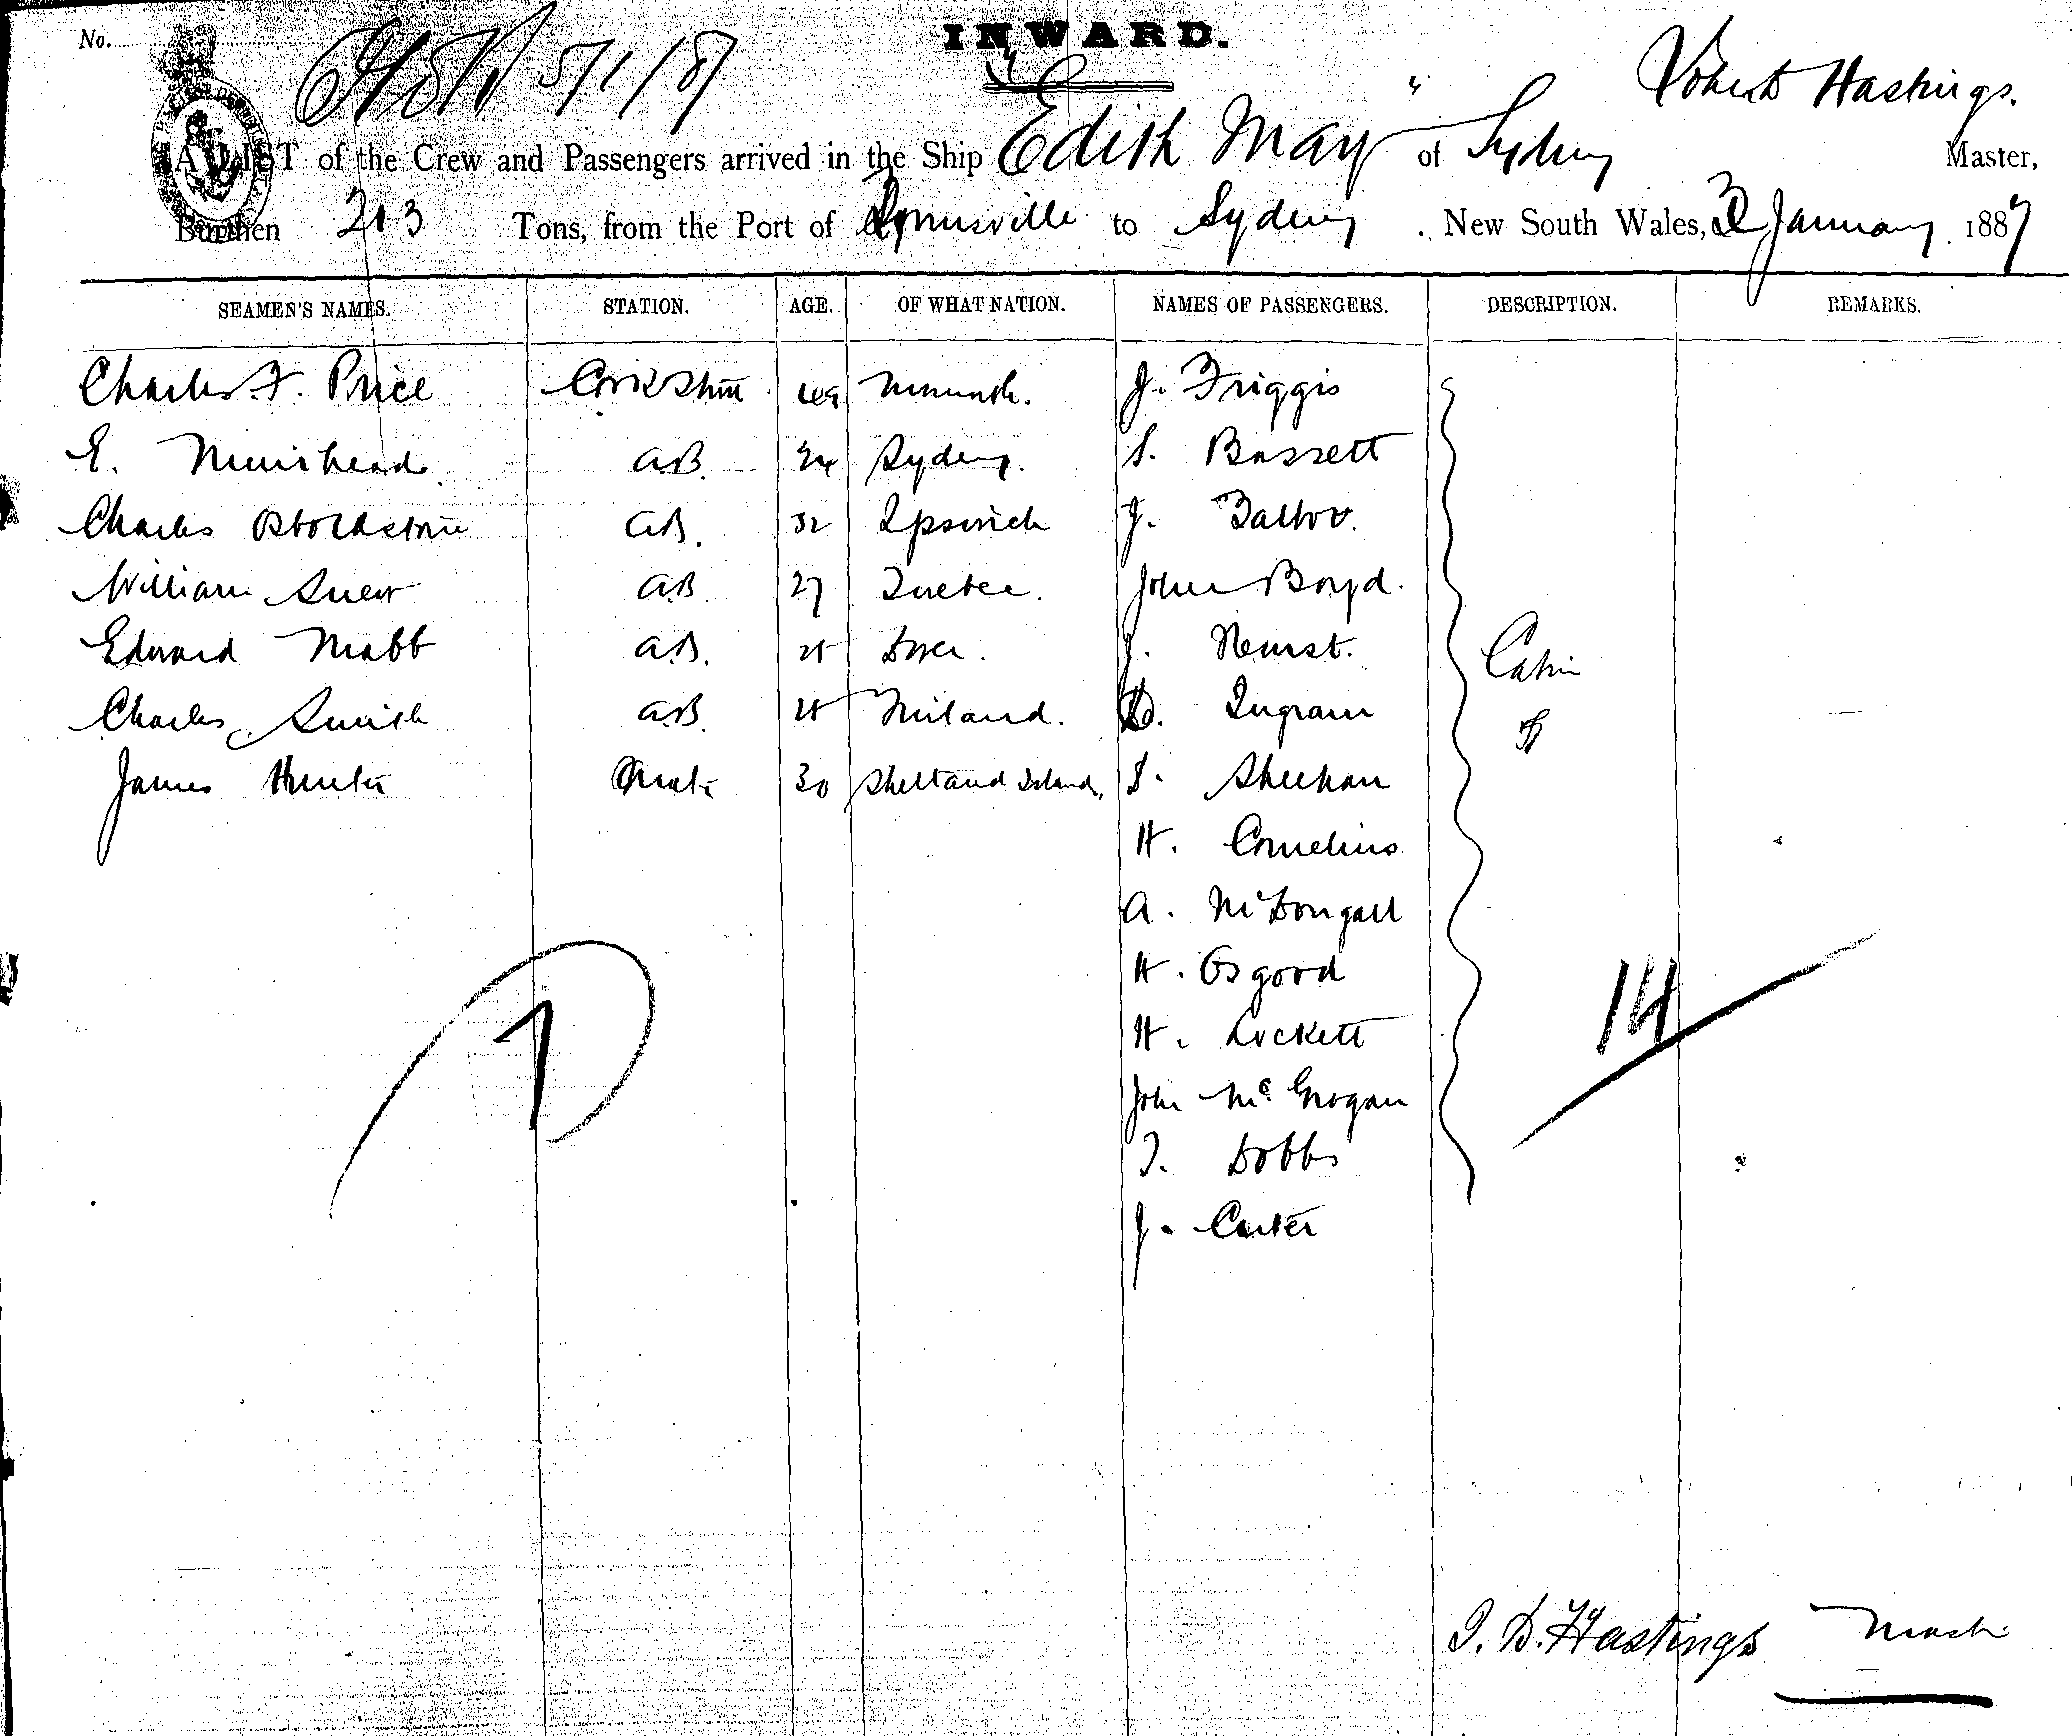 No.
5/1/87
INWARD.
Robert Hastings.
A LIST of the Crew and Passengers arrived in the Ship "Edith May" of Sydney Master,
Burthen 213 Tons, from the Port of to Sydney. New South Wales, 3 January 1887
SEAMEN'S NAMES. STATION. AGE. OF WHAT NATION. NAMES OF PASSENGERS. DESCRIPTION. REMARKS.
Charles F. Price 49 J. Friggis
E. Muirhead A.B. 24 Sydney. S. Bassett
Charles A.B. 32 Ipswich J.
William A.B. 27 Quebec. John Boyd.
Edward Mabb A.B. Dover. J. Hurst. Cabin
Charles Smith A.B. D. Ingram
James Hunter Mate 30 Shetland Islands, S. Sheehan
H. Cornelius
A. McDougall
H. Osgood
H. Lockett
14
7
John Mc Grogan
T. Dobbs
J. Carter
J. D. Hastings Master